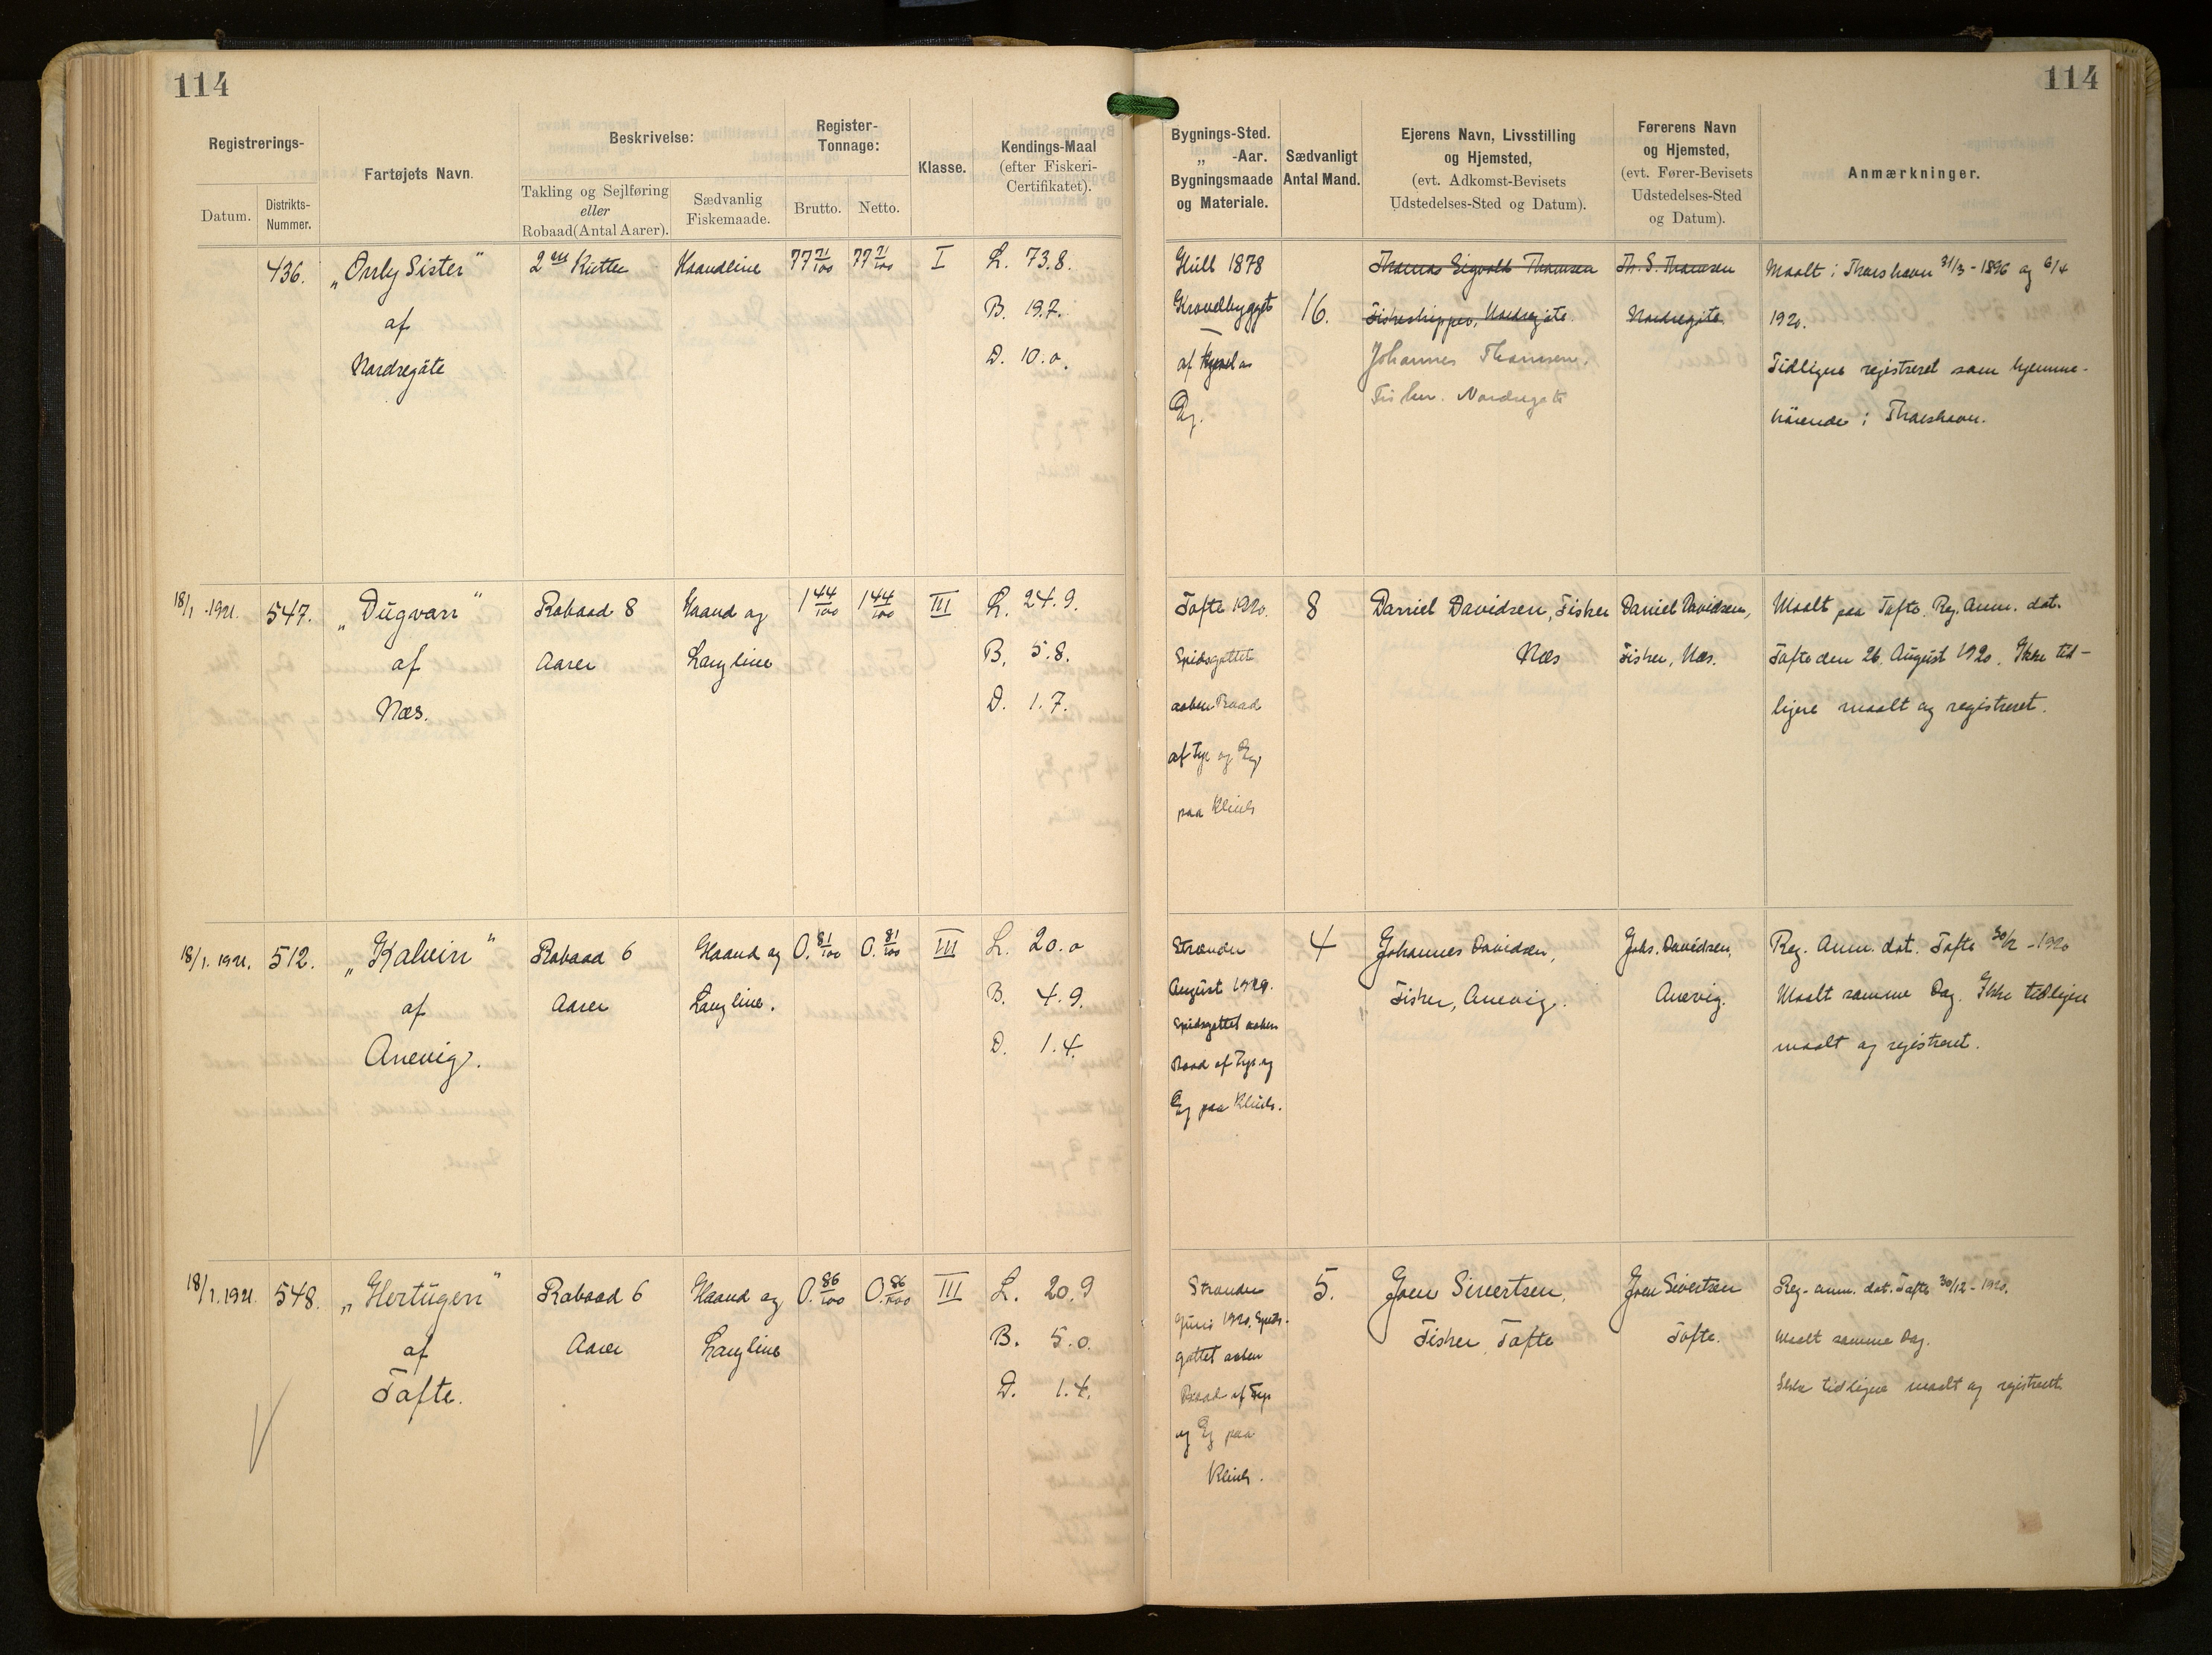 114
114
Registrerings-
Datum.
Distrikts-
Nummer.
Fartøjets Navn.
Beskrivelse:
Takling og Sejlføring
eller
Robaad (Antal Aarer).
Sædvanlig
Fiskemaade.
Register-
Tonnage:
Brutto.
Netto.
Klasse.
Kendings-Maal
(efter Fiskeri-
Certifikatet).
Bygnings-Sted.
„ -Aar.
Bygningsmaade
og Materiale.
Sædvanligt
Antal Mand.
Ejerens Navn, Livsstilling
og Hjemsted,
(evt. Adkomst-Bevisets
Udstedelses-Sted og Datum).
Førerens Navn
og Hjemsted,
(evt. Fører-Bevisets
Udstedelses-Sted
og Datum).
Anmærkninger.
436.
„Only Sister"
af
Nordregöte
2 m Kutter
Haandline
77 71/100
77 71/100
I
L. 73.8.
B. 19.7.
D. 10.0.
Hull 1878
Kravelbygget
af
Eg.
16.
Thomas Sigvald Thomsen
Fiskeskipper, Nordregöte.
Johannes Thomsen,
Fisker. Nordregöte
Th. S. Thomsen
Nordregöte
Maalt i Thorshavn 31/3 - 1896 og 6/4
1920.
Tidligere registreret som hjemme-
hörende i Thorshavn.
18/1 1921.
547.
„Dugvan"
af
Næs.
Robaad 8
Aarer
Haand og
Langline
1 44/100
1 44/100
III
L. 24.9.
B. 5.8.
D. 1.7.
Tofte 1920.
Spidsgattet
aaben Baad
af Fyr og Eg
paa Klink
8
Daniel Davidsen, Fisker
Næs
Daniel Davidsen,
Fisker, Næs.
Maalt paa Tofte. Reg. Anm. dat.
Tofte den 26. August 1920. Ikke tid-
ligere maalt og registreret.
18/1. 1921.
512.
„Kalvin"
af
Anevig.
Robaad 6
Aarer
Haand og
Langline.
0. 81/100
0. 81/100
III
L. 20.0
B. 4.9.
D. 1.4.
Strænder
August 1920.
Spidsgattet aaben
Baad af Fyr og
Eg paa Klink.
4
Johannes Davidsen,
Fisker, Anevig.
Johs. Davidsen,
Anevig.
Reg. Anm. dat. Tofte 30/12 - 1920
Maalt samme Dag. Ikke tidligere
maalt og registreret.
18/1. 1921.
548.
„Hertugen"
af
Tofte.
Robaad 6
Aarer
Haand og
Langline
0. 86/100
0. 86/100
III
L. 20.9
B. 5.0.
D. 1.4.
Strænder
Juni 1920. Spids-
gattet aaben
Baad af Fyr
og Eg paa
Klink.
5.
Joen Sivertsen,
Fisker Tofte
Joen Sivertsen
Tofte.
Reg. anm. dat. Tofte 30/12 - 1920.
Maalt samme Dag.
Ikke tidligere maalt og registreret.